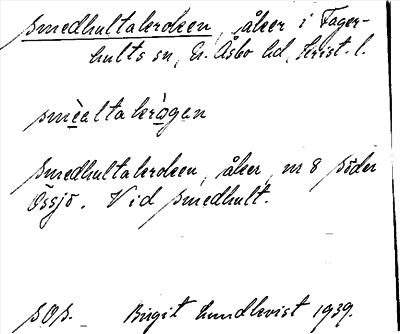 Smedhultakroken, åker i Fager-
hults sn, Ö. Åsbo hd, Krist. l.
smèaltakrògen
Smedhultakroken, åker, nr 8 Söder
Össjö. Vid Smedhult.
Birgit Lundkvist 1939.